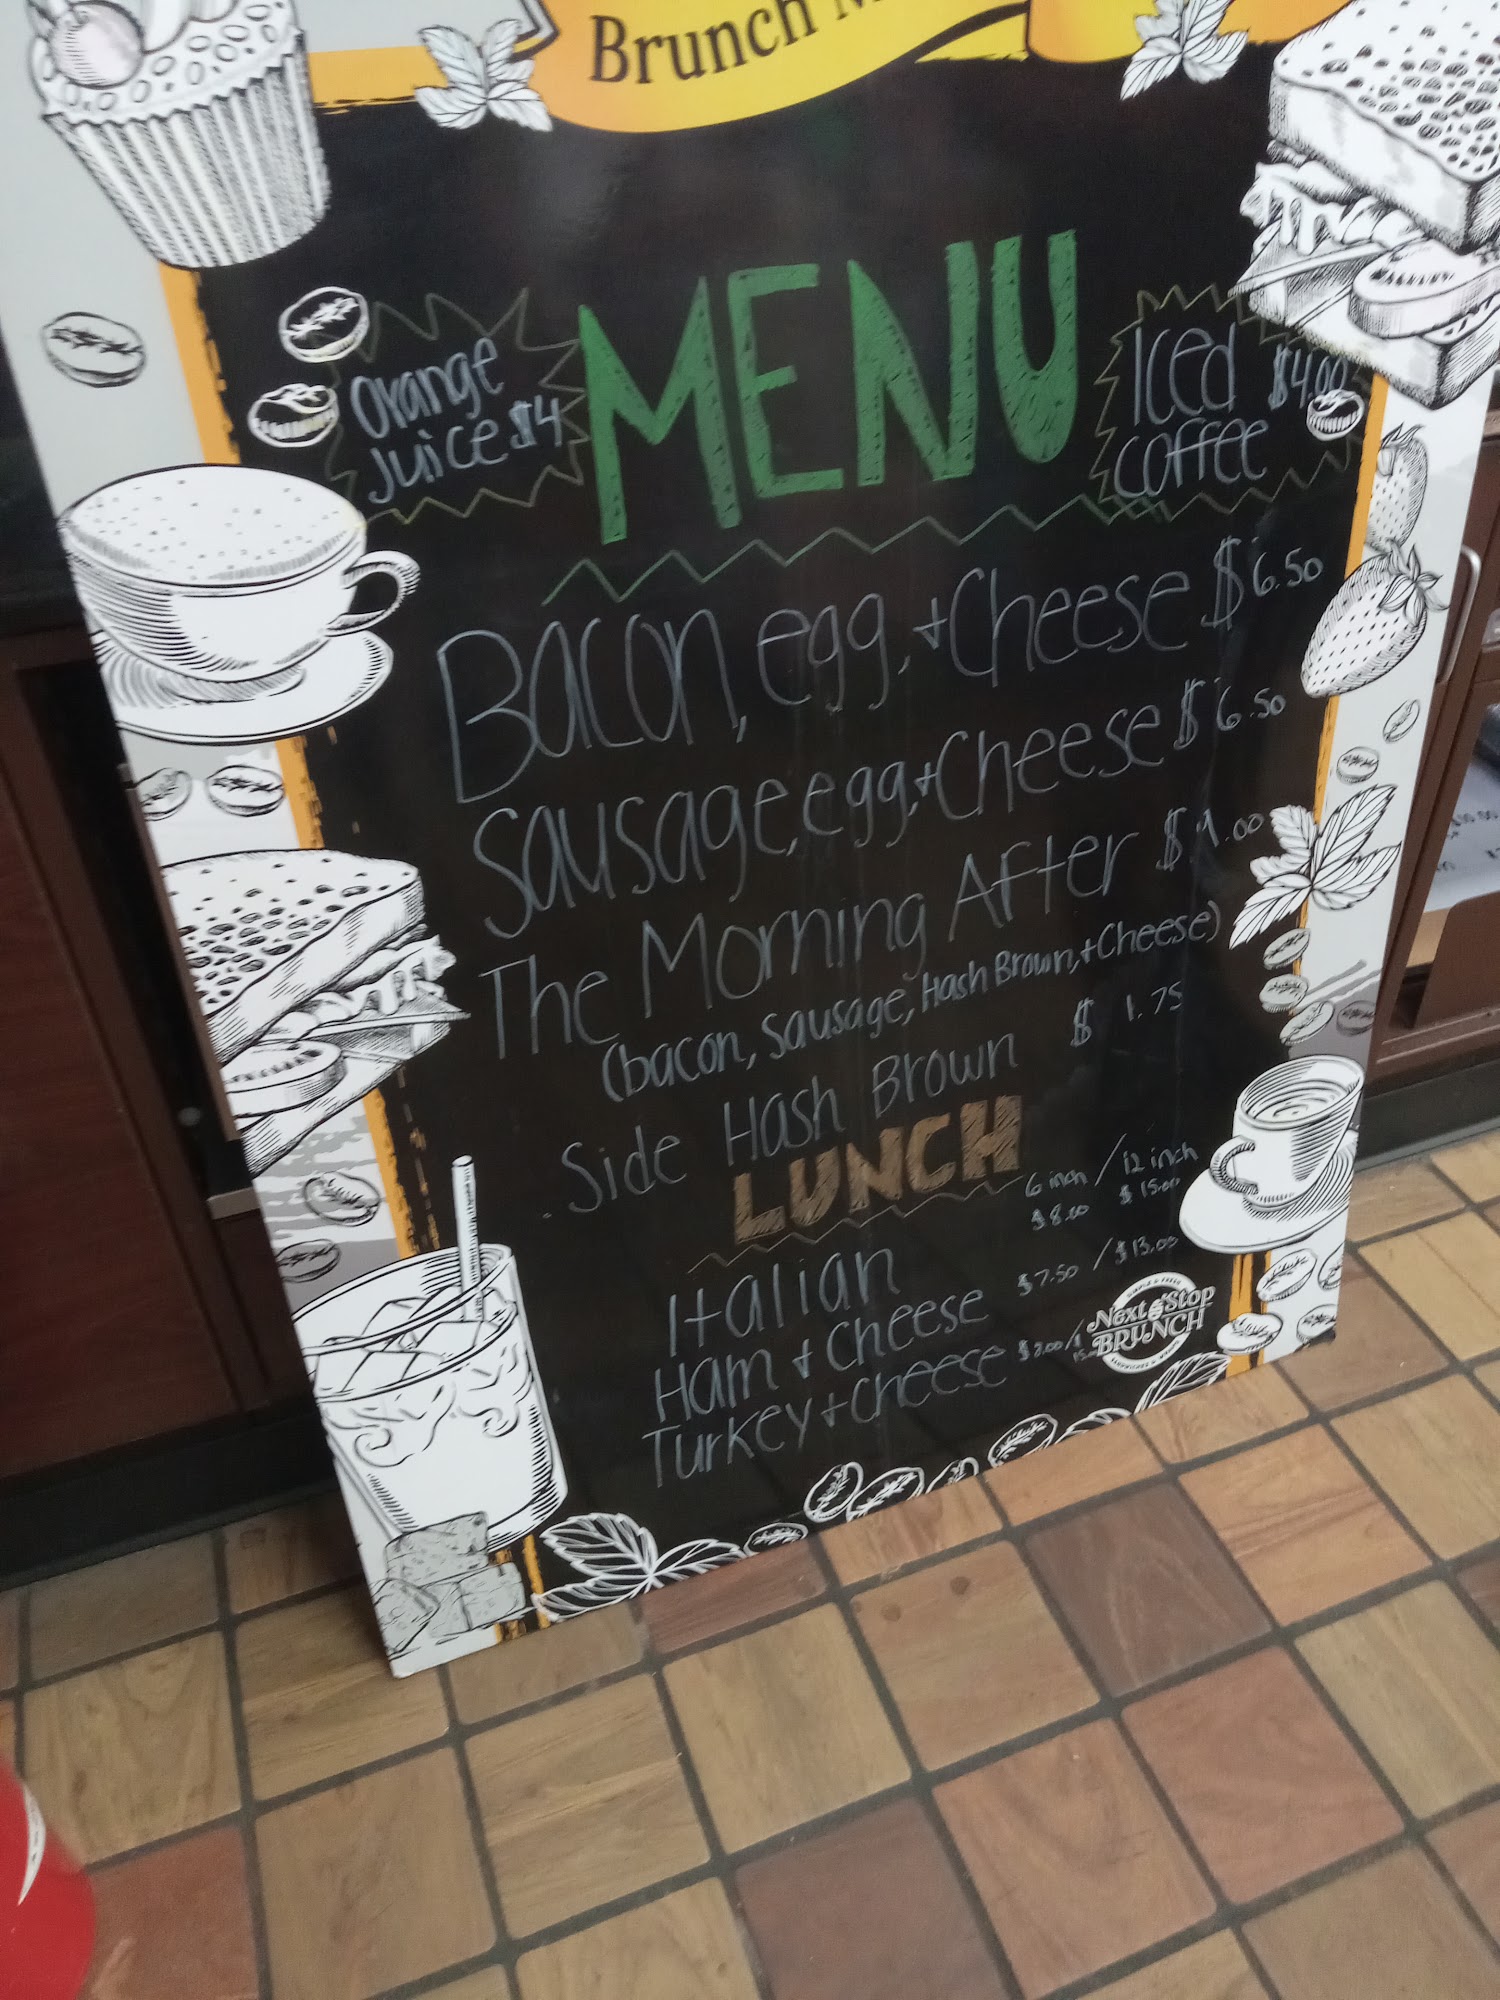 Brunch M
MENU
Orange
Juice $4
Iced $4.00
Coffee
Bacon, egg, + Cheese $6.50
Sausage, egg, + Cheese $6.50
The Morning After $9.00
(bacon, Sausage, Hash Brown, + Cheese)
Side Hash Brown $1.75
LUNCH
6 inch / 12 inch
Italian $8.00 $15.00
Ham + Cheese $7.50 / $13.00
Turkey + Cheese
Next Stop
BRUNCH